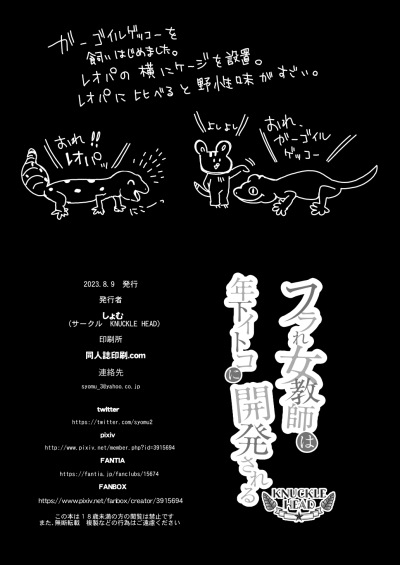 ガーゴイルゲッコーを
飼いはじめました。
レオパの横にケージを設置。
レオパに比べると野性味がすごい。
おれ!!
レオパッ
よしよし
おれ、
ガーゴイル
ゲッコー
2023.8.9 発行
発行者
しょむ
(サークル KNUCKLE HEAD)
印刷所
同人誌印刷.com
連絡先
syomu_3@yahoo.co.jp
twitter
https://twitter.com/syomu2
pixiv
http://www.pixiv.net/member.php?id=3915694
FANTIA
https://fantia.jp/fanclubs/15674
FANBOX
https://www.pixiv.net/fanbox/creator/3915694
この本は18歳未満の方の閲覧は禁止です
また、無断転載 複製などの行為はご遠慮ください
フラれ女教師は
年下イトコに
開発される
KNUCKLE
HEAD